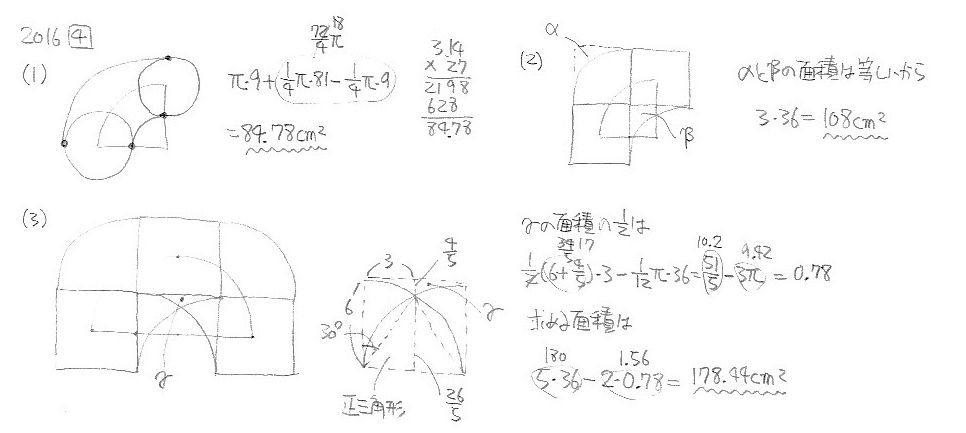 2016 4
(1)
72 18
4 π
π·9+(1/4π·81−1/4π·9)
=84.78cm²
3.14
× 27
2198
628
84.78
(2)
α
β
αとβの面積は等しいから
3·36=108cm²
(3)
γ
3
4/5
6
30°
γ
正三角形
26/5
γの面積の1/2は
34 17
5
10.2
9.42
1/2(6+4/5)·3−1/12π·36=51/5−3π=0.78
求める面積は
180
1.56
5·36−2·0.78=178.44cm²